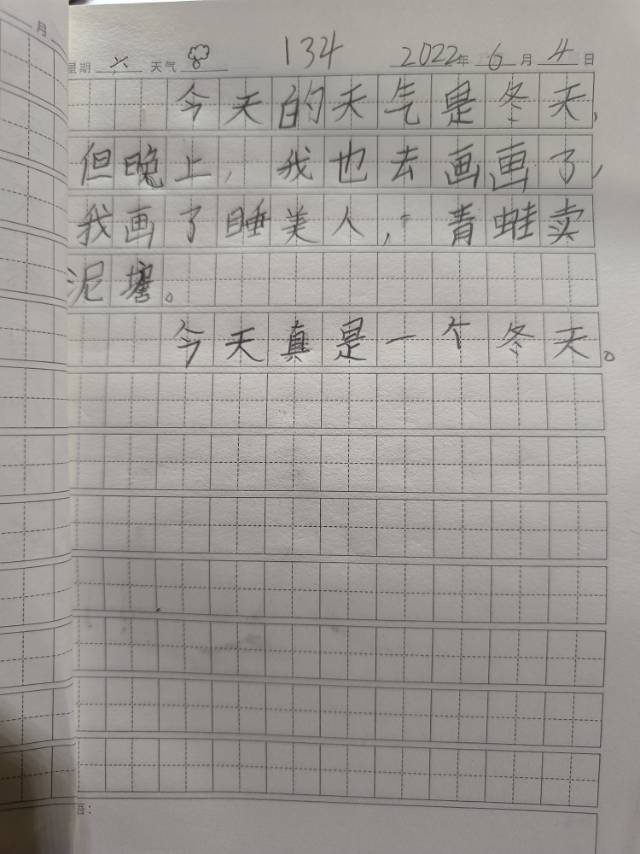 月
星期 六 天气 134 2022年 6月 4日
今天的天气是冬天,
但晚上,我也去画画了,
我画了睡美人,青蛙卖
泥塘。
今天真是一个冬天。